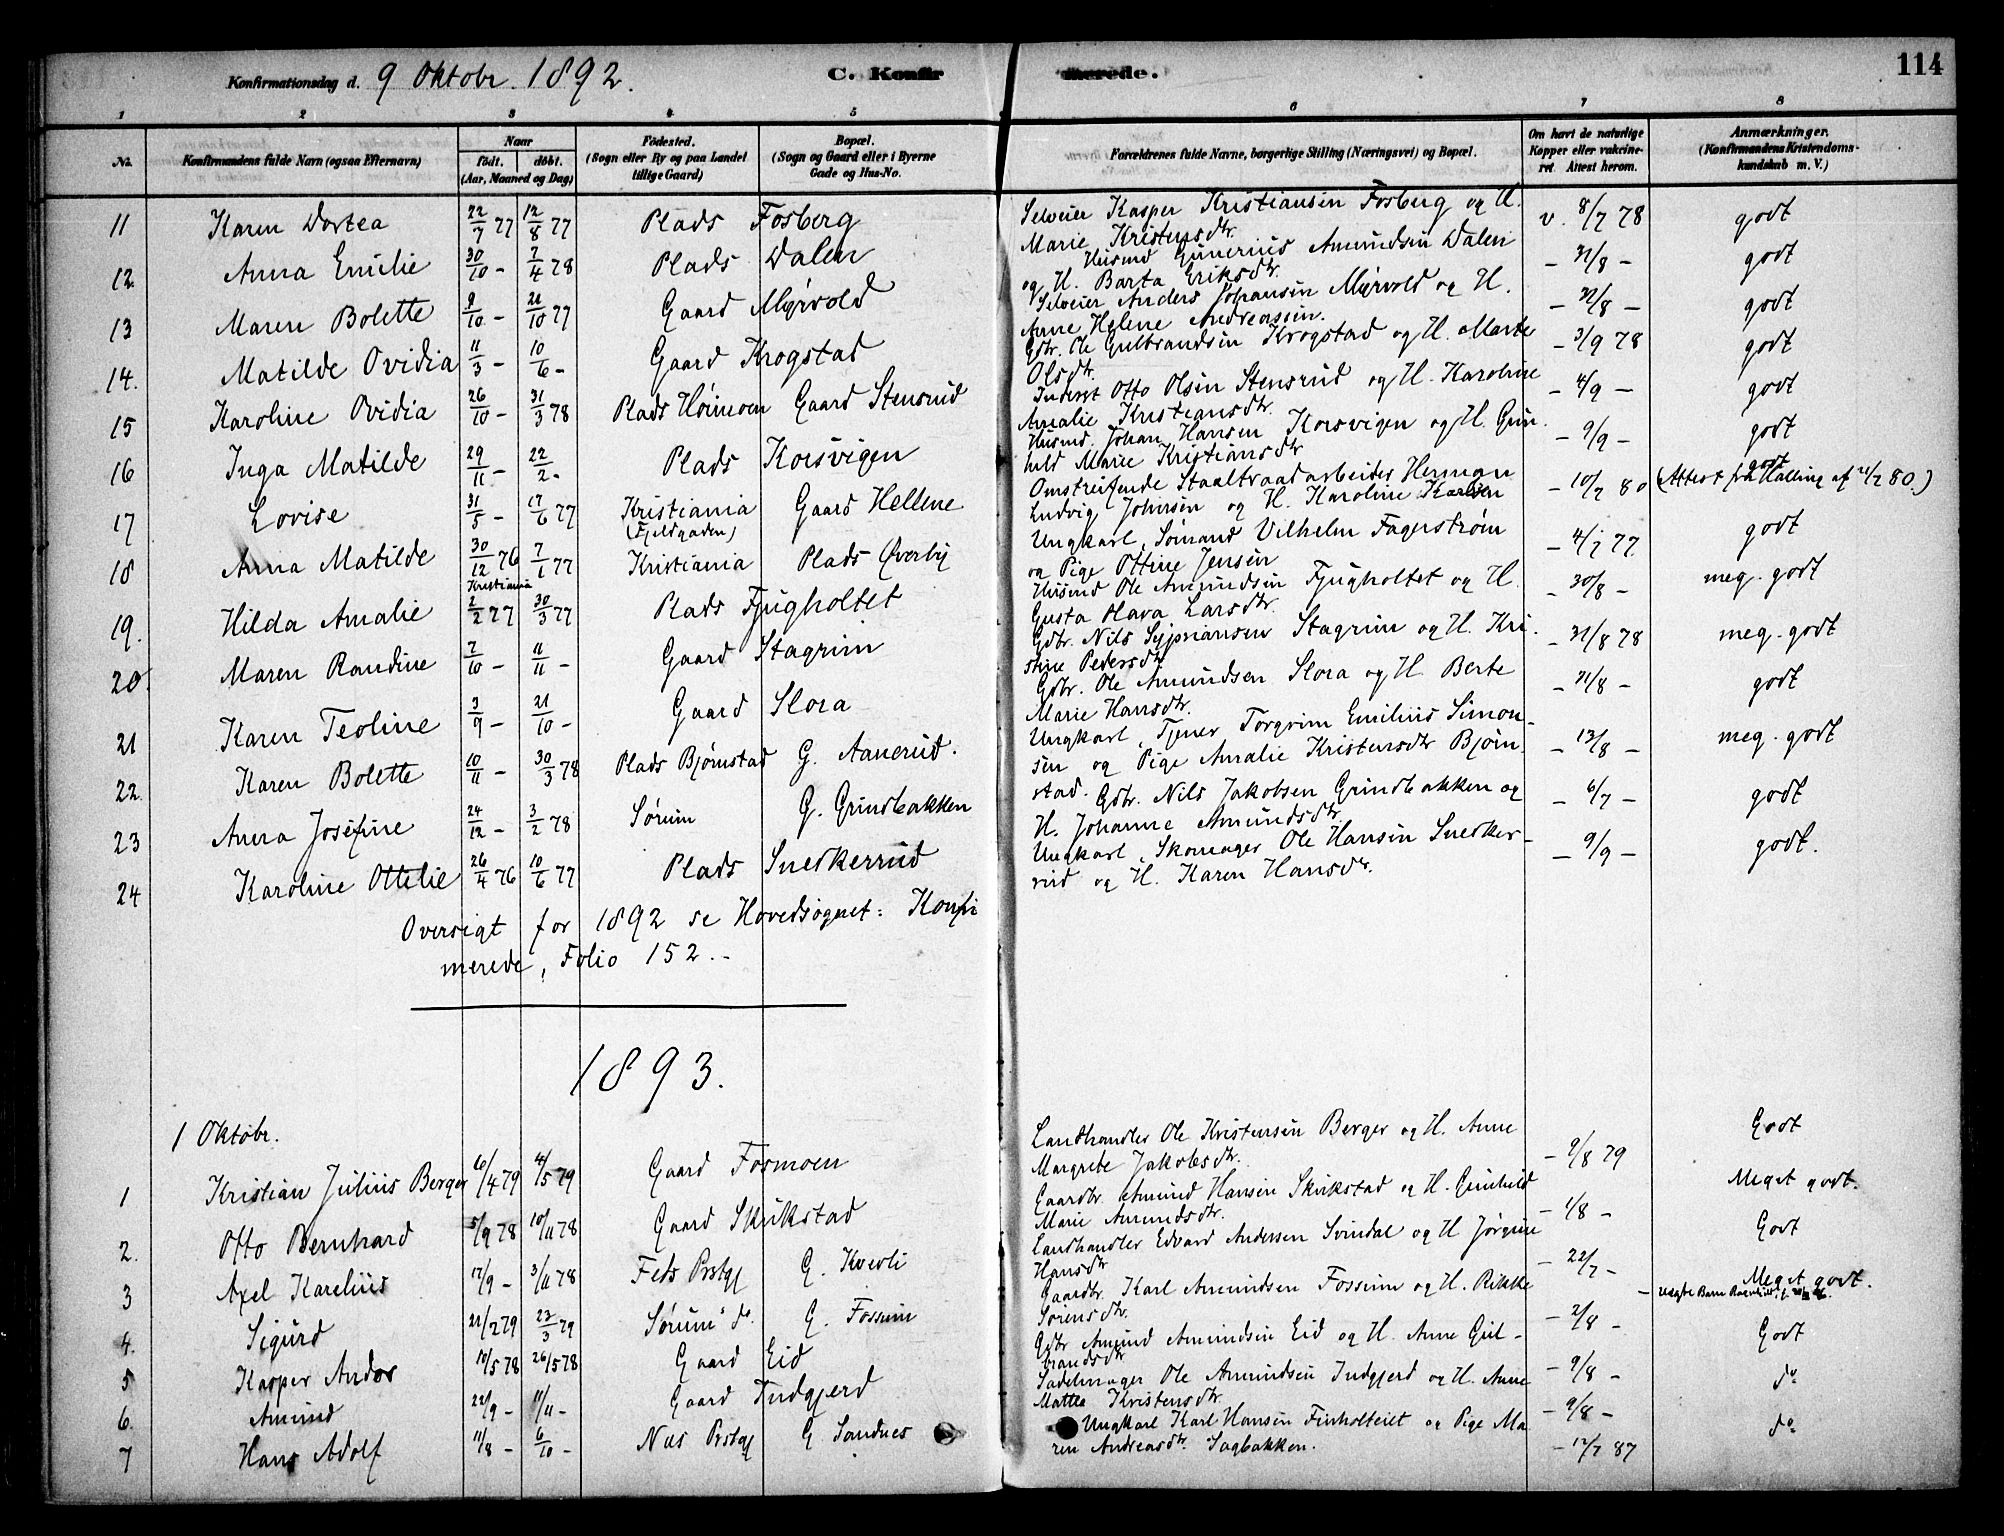 Konfirmationsdag d. 9 Oktobr. 1892. C. Konfir merede. 114
1 2 3 4 5 6 7 8
No. Konfirmandens fulde Navn (ogsaa Efternavn) Naar født. døbt. (Aar, Maaned og Dag) Fødested. (Sogn eller By og paa Landet tillige Gaard) Bopæl. (Sogn og Gaard eller i Byerne Gade og Hus-No. Forældrenes fulde Navne, borgerlige Stilling (Næringsvei) og Bopæl. Om havt de naturlige Kopper eller vakcineret. Attest herom. Anmærkninger. (Konfirmandens Kristendomskundskab m. V.)
11 Karen Dortea 22/7 77 12/8 77 Plads Fosberg Selveier Kasper Kristiansen Fosberg og H. Marie Kristensdtr. v. 8/7 78 godt
12. Anna Emilie 30/10 - 7/4 78 Plads Dalen Husmd Gunerius Amundsen Dalen og H. Barta Eriksdtr. - 31/8 - godt
13 Maren Bolette 9/10 - 21/10 77 Gaard Myrvold Selveier Anders Johansen Myrvold og H. Anne Helene Andreassen. - 31/8 - godt
14. Matilde Ovidia 11/3 - 10/6 - Gaard Krogstad Gdbr. Ole Gulbrandsen Krogstad og H. Marte Olsdtr. - 3/9 78 godt
15 Karoline Ovidia 26/10 - 31/3 78 Plads Høimoen Gaard Stensrud Inderst Otto Olsen Stensrud og H. Karoline Amalie Kristiansdtr. - 4/9 - godt
16 Inga Matilde 29/11 - 22/2 - Plads Korsvigen Husmd. Johan Hansen Korsvigen og H. Gunhild Marie Kristiansdtr - 9/9 - godt
17 Lovise 31/5 - 17/6 77 Kristiania (Fjeldgaden) Gaard Hellene Omstreifende Staaltraadarbeider Herman Ludvig Johnsen og H. Karoline Karlsen - 10/7 80 godt (Attest fra Halling af 11/7 80.)
18 Anna Matilde 30/12 76 Kristiania 7/1 77 Kristiania Plads Øverby Ungkarl, Sømand Vilhelm Fagerstrøm og Pige Ottine Jensen - 4/7 77 godt
19. Hilda Amalie 2/2 77 30/3 77 Plads Fjugholtet Husmd Ole Amundsen Fjugholtet og H. Gusta Olava Larsdtr. - 30/8 - meg. godt
20. Maren Randine 7/10 - 11/11 - Gaard Stagrim Gdbr. Nils Syprianesen Stagrim og H. Kristine Pedersdtr - 31/8 78 meg. godt
21 Karen Teoline 3/9 - 21/10 - Gaard Slora Gdbr. Ole Amundsen Slora og H. Berte Marie Hansdtr. - 31/8 - godt
22. Karen Bolette 10/11 - 30/3 78 Plads Bjørnstad G. Aanerud. Ungkarl, Tjener Torgrim Emilius Simonsen og Pige Amalie Kristensdtr Bjørnstad. - 13/8 - meg. godt
23 Anna Josefine 24/12 - 3/2 78 Sørum G. Grindbakken Gdbr. Nils Jakobsen Grindbakken og H. Johanne Amundsdtr. - 6/7 - godt
24 Karoline Ottilie 26/4 76 10/6 77 Plads Snedkerrud Ungkarl, Skomager Ole Hansen Snedkerrud og H. Karen Hansdtr. - 9/9 - godt.
Oversigt for 1892 se Hovedsognet: Konfi
merede, Folio 152. -
1893.
1 Oktobr.
1 Kristian Julius Berger 6/4 79 4/5 79 Gaard Fosmoen Landhandler Ole Kristensen Berger og H. Anne Margrete Jakobsdtr. - 9/8 79 Godt
2. Otto Bernhard 5/9 78 10/11 78 Gaard Skukstad Gaardbr. Amund Hansen Skukstad og H. Gunhild Marie Amundsdtr. - 1/8 - Meget godt.
3 Axel Karelius 17/9 - 3/11 78 Fets Prstgj G. Kverli Landhandler Edvard Andersen Svindal og H Jørgine Hansdtr - 22/7 - Godt
4. Sigurd 21/2 79 23/3 79 Sørum do G. Fossum Gaardbr. Karl Amundsen Fossum og H. Rikke Sørensdtr. - 2/8 - Meget godt.
5 Kasper Andor 10/5 78 26/5 78 Gaard Eid Gdbr Amund Amundsen Eid og H. Anne Gulbrandsdtr - 9/8 - Godt
6. Amund 22/9 - 11/11 - Gaard Indgjerd Sadelmager Ole Amundsen Indgjerd og H. Anne Mattea Kristensdtr. - 9/8 - do
7 Hans Adolf 11/8 - 6/10 - Næs Prstgj G Sandnes Ungkarl Karl Hansen Finholteiet og Pige Maren Andreasdtr. Sagbakken. - 12/7 87 do